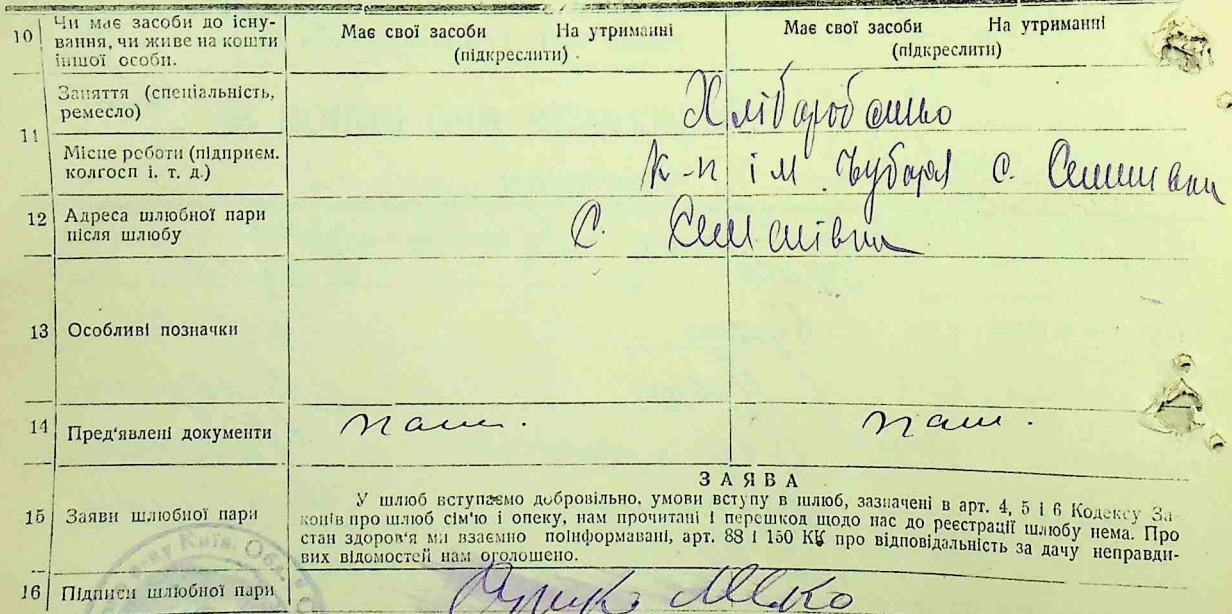 10 Чи має засоби до існу-
вання, чи живе на кошти
іншої особи.
Має свої засоби На утриманні
(підкреслити)
Має свої засоби На утриманні
(підкреслити)
11 Заняття (спеціальність,
ремесло)
Місце роботи (підприєм.
колгосп і. т. д.)
к-п ім. Чубаря с.
12 Адреса шлюбної пари
після шлюбу
с.
13 Особливі позначки
14 Пред'явлені документи
паш.
паш.
15 Заяви шлюбної пари
ЗАЯВА
У шлюб вступаємо добровільно, умови вступу в шлюб, зазначені в арт. 4, 5 і 6 Кодексу За-
конів про шлюб сім'ю і опеку, нам прочитані і перешкод щодо нас до реєстрації шлюбу нема. Про
стан здоров'я ми взаємно поінформавані, арт. 88 і 150 КК про відповідальність за дачу неправди-
вих відомостей нам оголошено.
16 Підписи шлюбної пари
Київ. Обл.